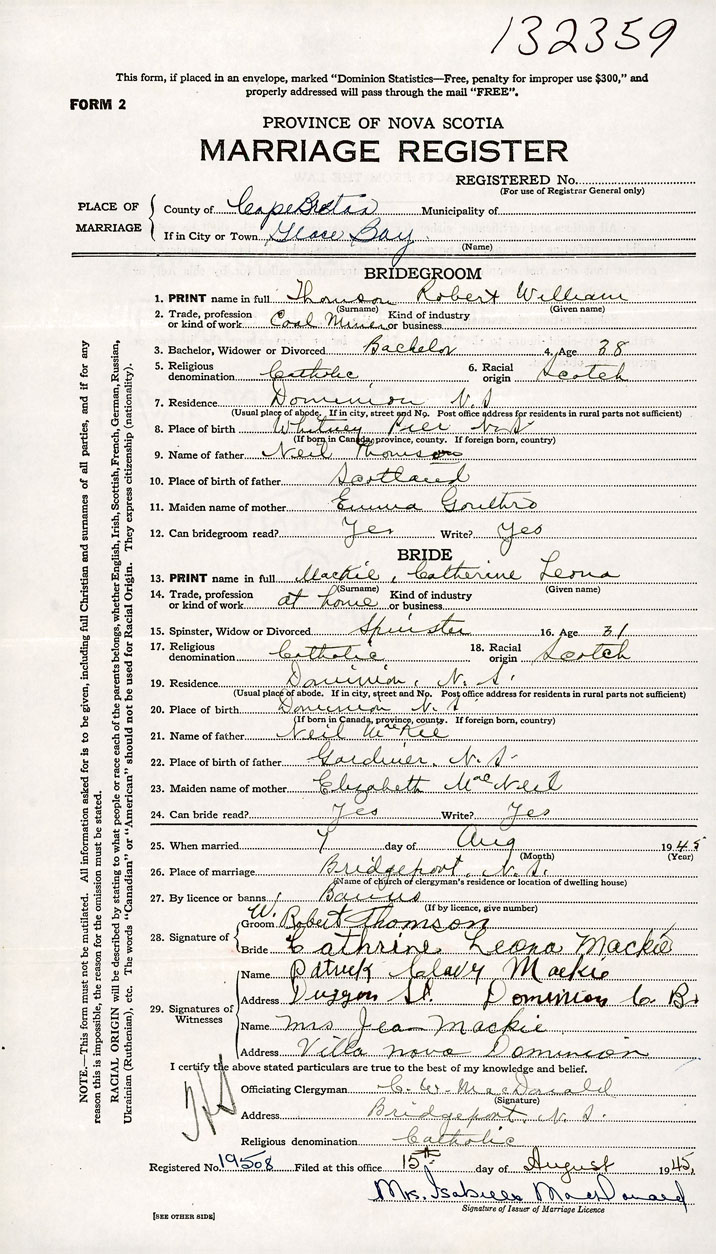 132359
This form, if placed in an envelope, marked "Dominion Statistics—Free, penalty for improper use $300," and
properly addressed will pass through the mail "FREE".
FORM 2
PROVINCE OF NOVA SCOTIA
MARRIAGE REGISTER
REGISTERED No.
(For use of Registrar General only)
PLACE OF MARRIAGE
County of Cape Breton Municipality of
If in City or Town Glace Bay
(Name)
BRIDEGROOM
1. PRINT name in full Thomson Robert William
(Surname) (Given name)
2. Trade, profession or kind of work Coal Miner Kind of industry or business
3. Bachelor, Widower or Divorced Bachelor 4. Age 38
5. Religious denomination Catholic 6. Racial origin Scotch
7. Residence Dominion N.S
(Usual place of abode. If in city, street and No. Post office address for residents in rural parts not sufficient)
8. Place of birth Whitney Pier N.S.
(If born in Canada, province, county. If foreign born, country)
9. Name of father Neil Thomson
10. Place of birth of father Scotland
11. Maiden name of mother Emma Gouthro
12. Can bridegroom read? Yes Write? Yes
BRIDE
13. PRINT name in full Mackie, Catherine Leona
(Surname) (Given name)
14. Trade, profession or kind of work at home Kind of industry or business
15. Spinster, Widow or Divorced Spinster 16. Age 31
17. Religious denomination Catholic 18. Racial origin Scotch
19. Residence Dominion, N.S.
(Usual place of abode. If in city, street and No. Post office address for residents in rural parts not sufficient)
20. Place of birth Dominion N.S
(If born in Canada, province, county. If foreign born, country)
21. Name of father Neil MacKie
22. Place of birth of father Gardiner, N.S.
23. Maiden name of mother Elizabeth MacNeil
24. Can bride read? Yes Write? Yes
25. When married 7 day of Aug 1945
(Month) (Year)
26. Place of marriage Bridgeport, N.S.
(Name of church of clergyman's residence or location of dwelling house)
27. By licence or banns Banns
(If by licence, give number)
28. Signature of
Groom W. Robert Thomson
Bride Cathrine Leona Mackie
29. Signatures of Witnesses
Name Patrick Mackie
Address Duggan St. Dominion C.B.
Name Mrs Jean Mackie
Address Villa nova Dominion
I certify the above stated particulars are true to the best of my knowledge and belief.
Officiating Clergyman C. W. MacDonald
(Signature)
Address Bridgeport, N.S.
Religious denomination Catholic
Registered No. 19508 Filed at this office 15th day of August 1945,
Mrs. Isabella MacDonald
Signature of Issuer of Marriage Licence
[SEE OTHER SIDE]
NOTE.—This form must not be mutilated. All information asked for is to be given, including full Christian and surnames of all parties, and if for any
reason this is impossible, the reason for the omission must be stated.
RACIAL ORIGIN will be described by stating to what people or race each of the parents belongs, whether English, Irish, Scottish, French, German, Russian,
Ukrainian (Ruthenian), etc. The words "Canadian" or "American" should not be used for Racial Origin. They express citizenship (nationality).